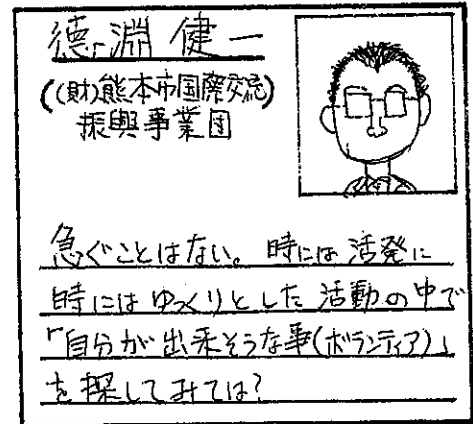 徳淵 健一
((財)熊本市国際交流)
振興事業団
急ぐことはない。時には活発に
時にはゆっくりとした活動の中で
「自分が出来そうな事(ボランティア)」
を探してみては?